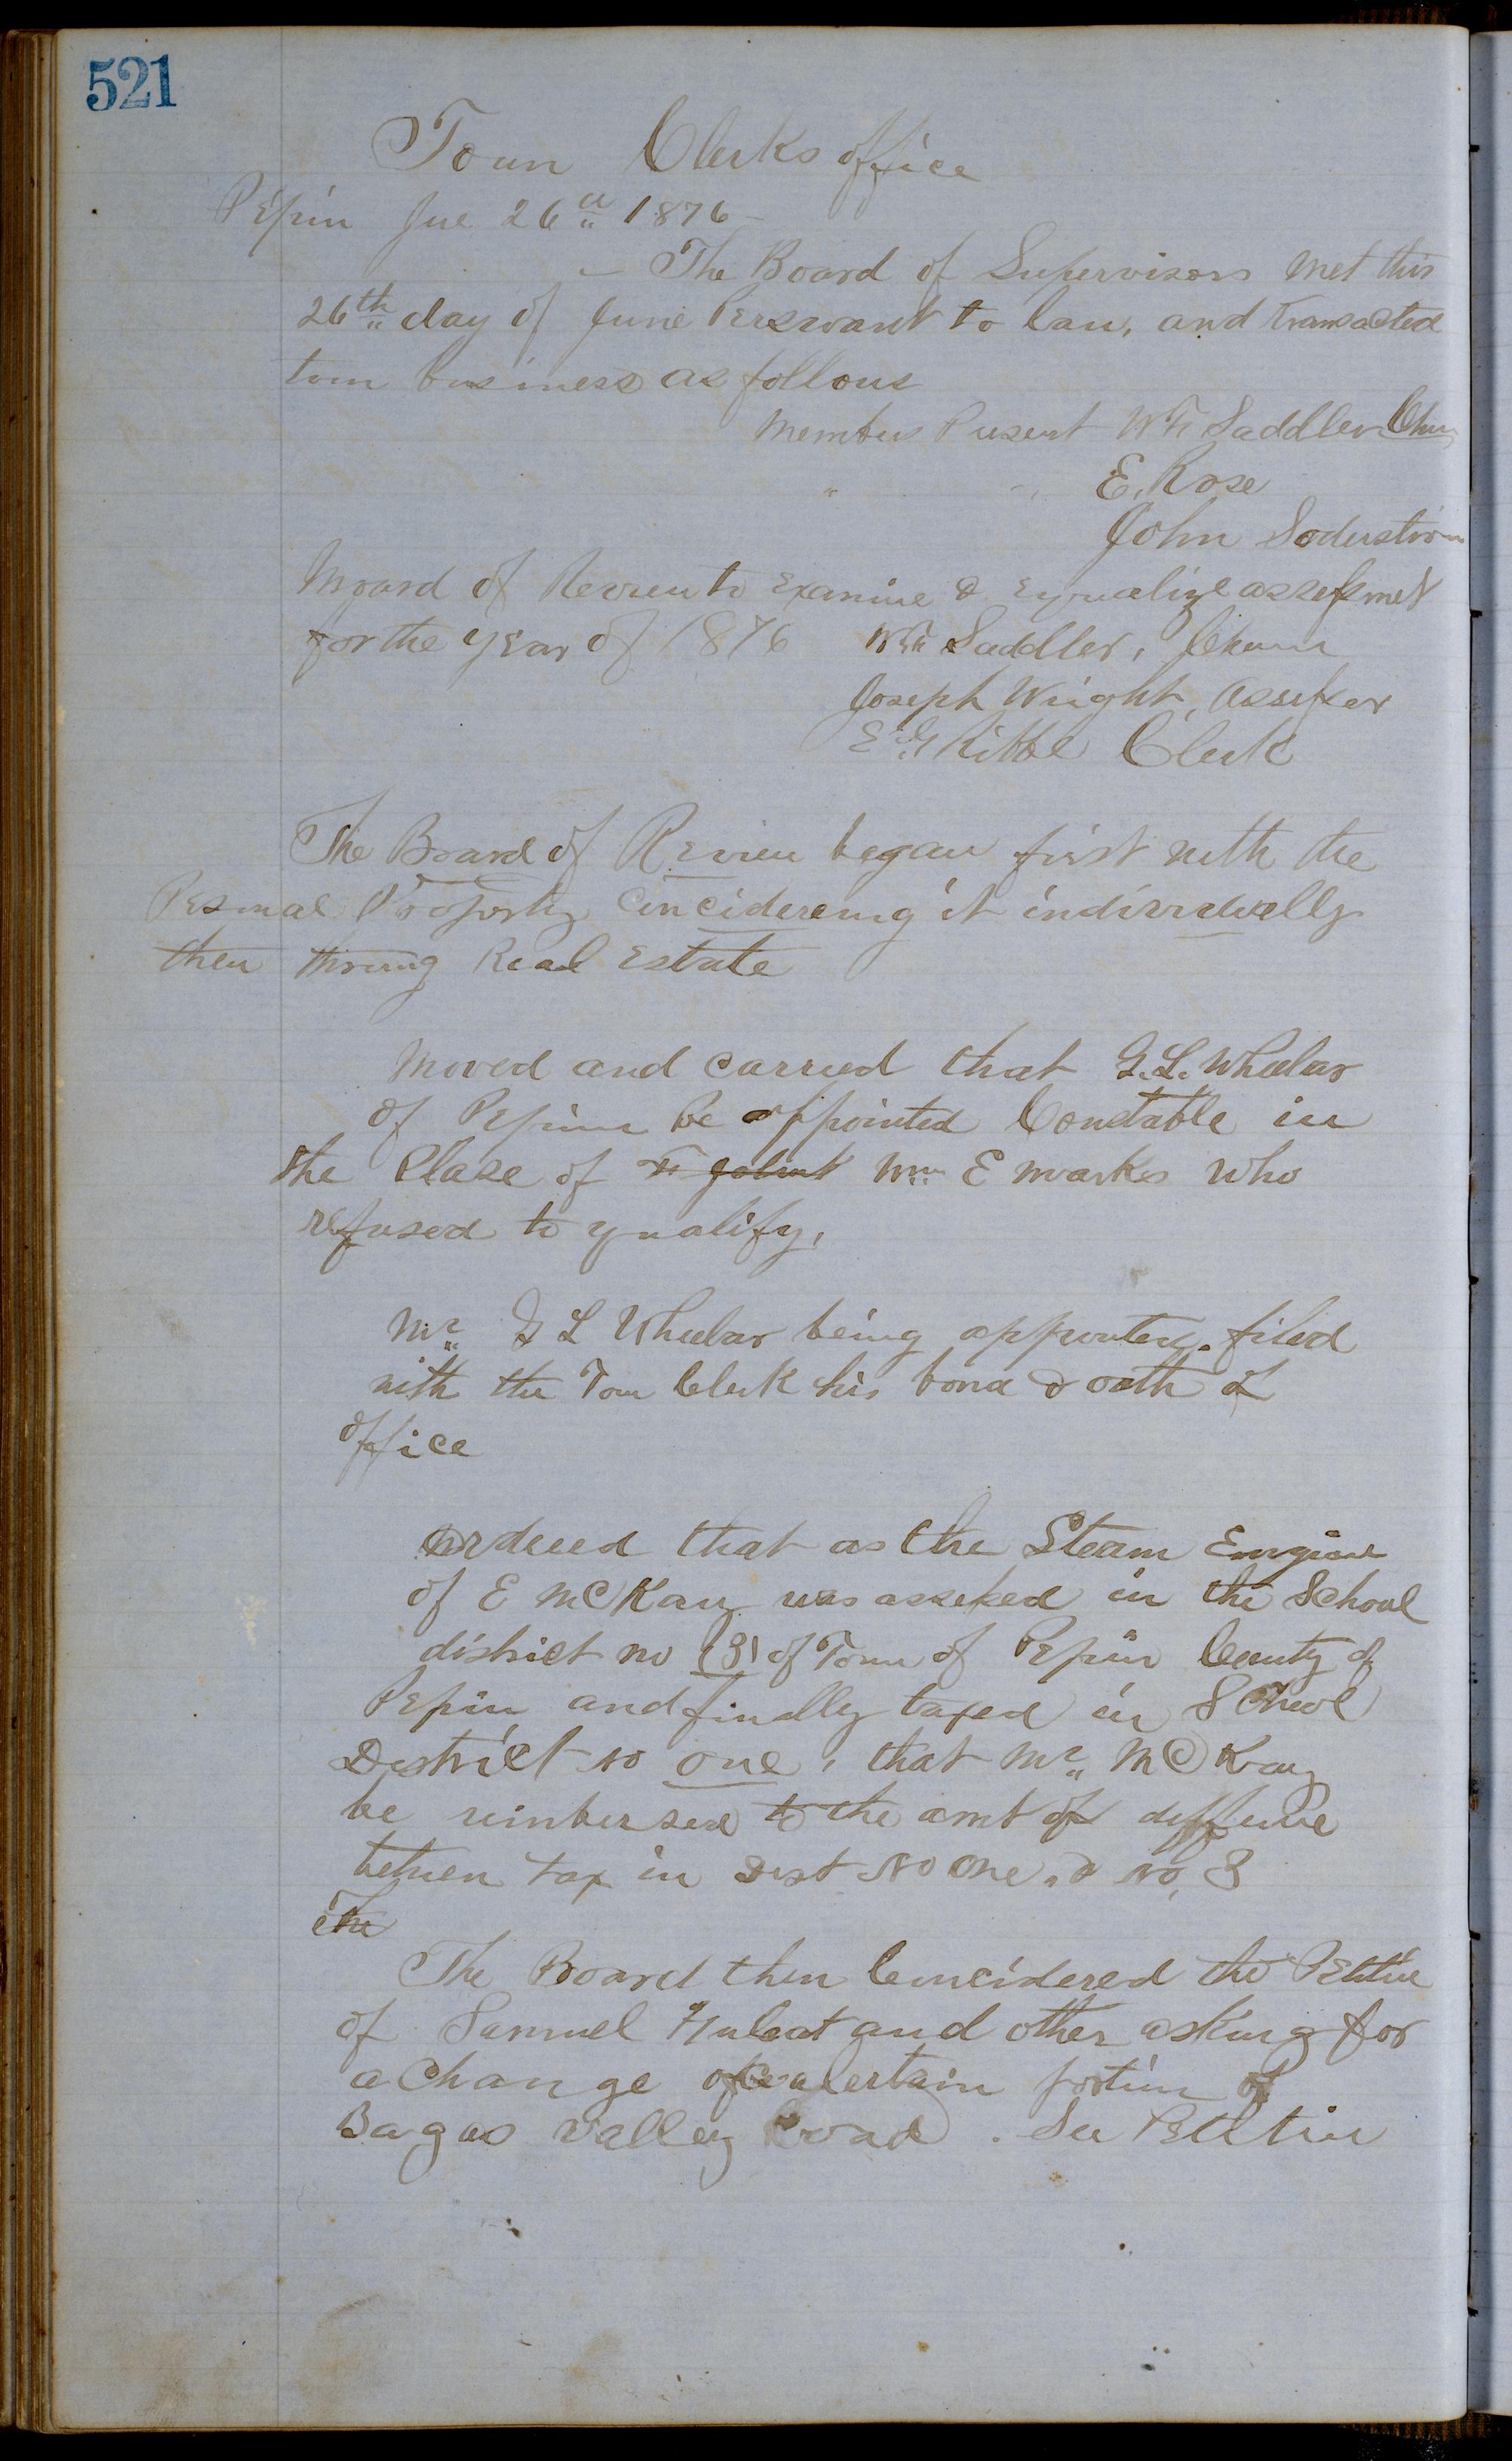 521
Town Clerks office
Pepin Jue 26th 1876
The Board of Supervisors met this
26th day of June Perswant to law, and transacted
town business as follows
Members Present Wm Saddler Chm
" " E. Rose
John Soderstrom
Board of Review to Examine & Equalize assessmet
for the year of 1876 Wm Saddler, Chmn
Joseph Wright, Assessor
E. G. Kibbe Clerk
The Board of Review began first with the
Personal Property Concidereing it individually
then Real Estate
Moved and carried that G. L. Wheelar
of Pepin be appointed Constable in
the Place of Wm E Marks who
refused to qualify,
Mr G L Wheelar being appointed filed
with the Town Clerk his bond & oath of
office
Ordered that as the Steam Enngine
of E McKay was assessed in the School
district no (3) of Town of Pepin County of
Pepin and finally taxed in School
District no one, that Mr McKay
be reimbersed to the amt of difference
between tax in Dist No one & No, 3
The
The Board then Concidered the Petition
of Samuel and other asking for
a change of a certain portion of
Bagas Valley Road. See Petition